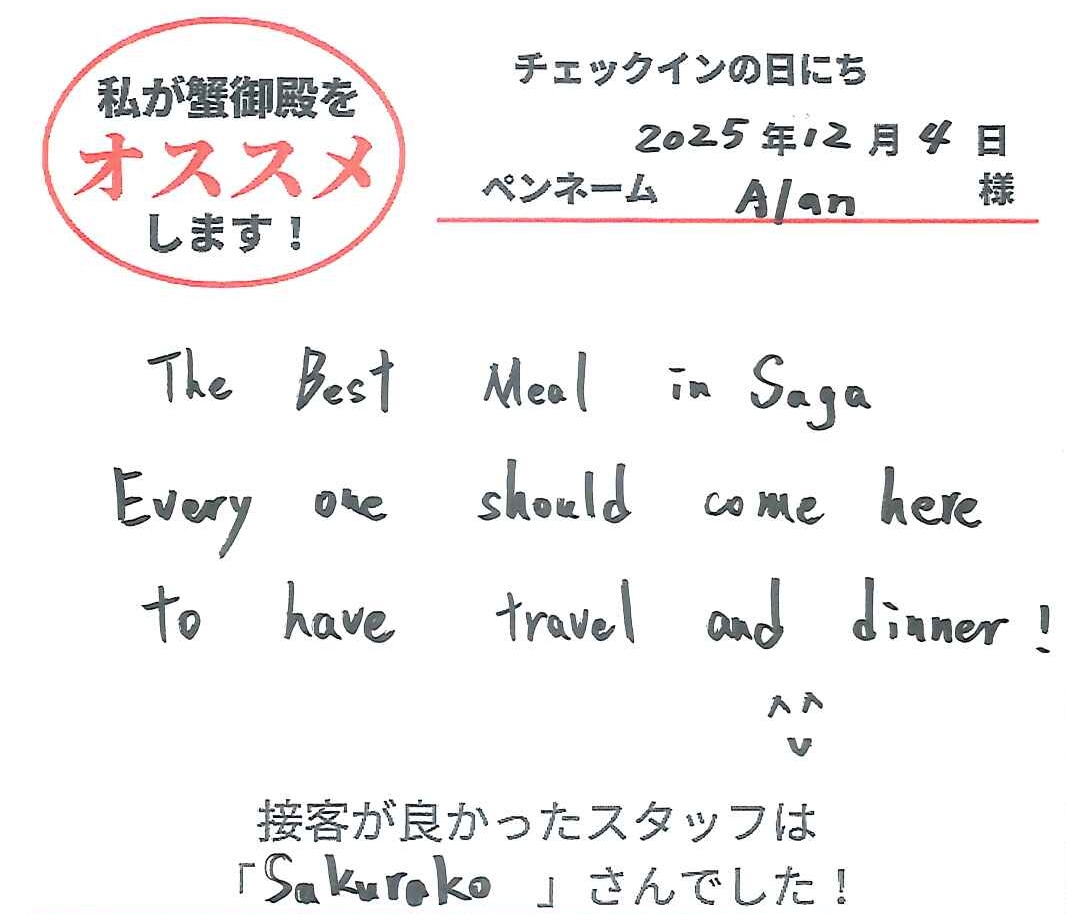 私が蟹御殿を
オススメ
します！
チェックインの日にち
2025年12月4日
ペンネーム Alan 様
The Best Meal in Saga
Every one should come here
to have travel and dinner!
^^
v
接客が良かったスタッフは
「Sakurako」さんでした！